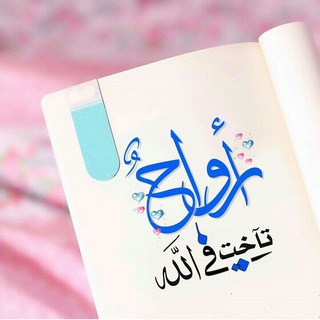 أرواحٌ
تآخيت في الله